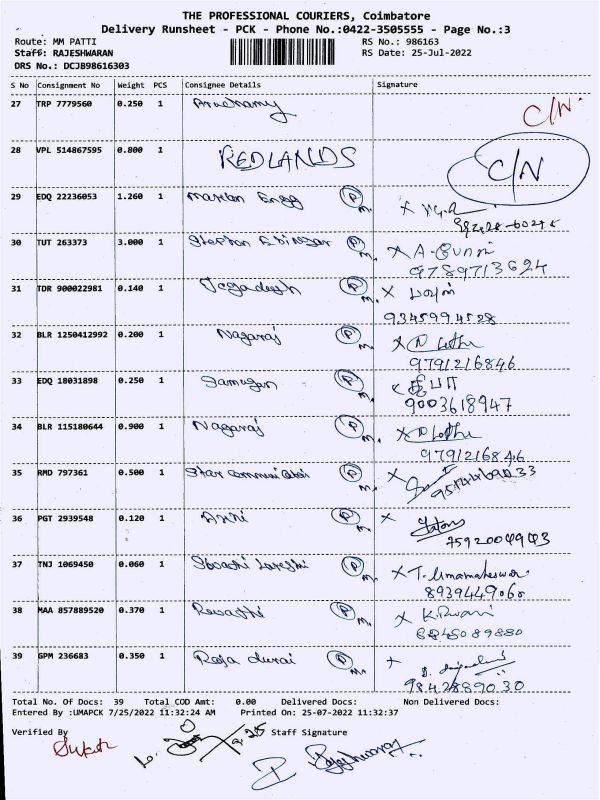 THE PROFESSIONAL COURIERS, Coimbatore
Delivery Runsheet - PCK - Phone No.:0422-3505555 - Page No.:3
Route: MM PATTI RS No.: 986163
Staff: RAJESHWARAN RS Date: 25-Jul-2022
DRS No.: DCJB98616303
S No Consignment No Weight PCS Consignee Details Signature
27 TRP 7779560 0.250 1 C/N
28 VPL 514867595 0.800 1 REDLANDS C/N
29 EDQ 22236053 1.260 1 P
30 TUT 263373 3.000 1 P
9789713624
31 TDR 900022981 0.140 1 Jegadesh P
9345994528
32 BLR 1250412992 0.200 1 Nagaraj P
9791216846
33 EDQ 18031898 0.250 1 P தீபா
9003618947
34 BLR 115180644 0.900 1 Nagaraj P
9791216846
35 RMD 797361 0.500 1 Star P
36 PGT 2939548 0.120 1 P
37 TNJ 1069450 0.060 1 P T. Umamaheswari
8939449060
38 MAA 857889520 0.370 1 Revathi P
39 GPM 236683 0.350 1 Raja durai P
9842889030
Total No. Of Docs: 39 Total COD Amt: 0.00 Delivered Docs: Non Delivered Docs:
Entered By :UMAPCK 7/25/2022 11:32:24 AM Printed On: 25-07-2022 11:32:37
Verified By Staff Signature